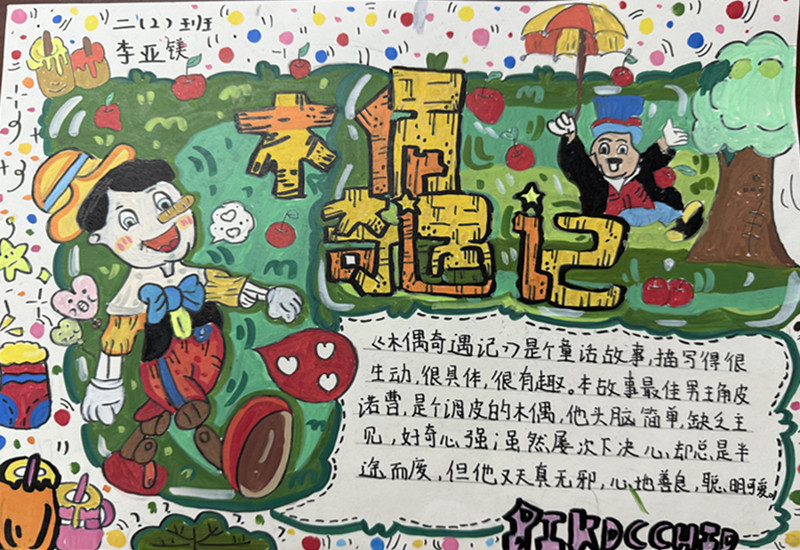 二(2)班
李亚镁
木偶
奇遇记
《木偶奇遇记》是个童话故事,描写得很
生动,很具体,很有趣。本故事最佳男主角皮
诺曹,是个调皮的木偶,他头脑简单,缺乏主
见,好奇心强;虽然屡次下决心,却总是半
途而废,但他又天真无邪,心地善良,聪明可爱。